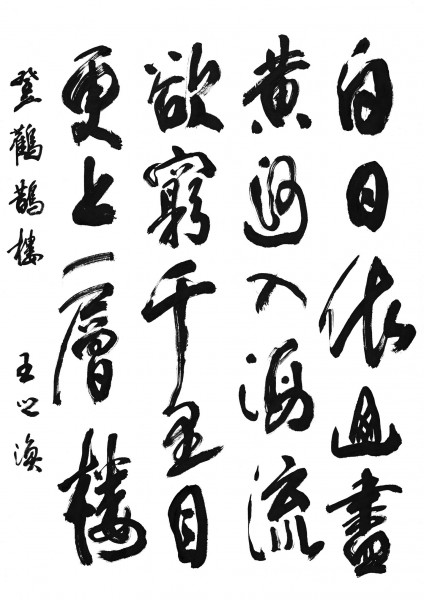 白日依山盡
黄河入海流
欲窮千里目
更上一層樓
登鸛鵲樓 王之渙